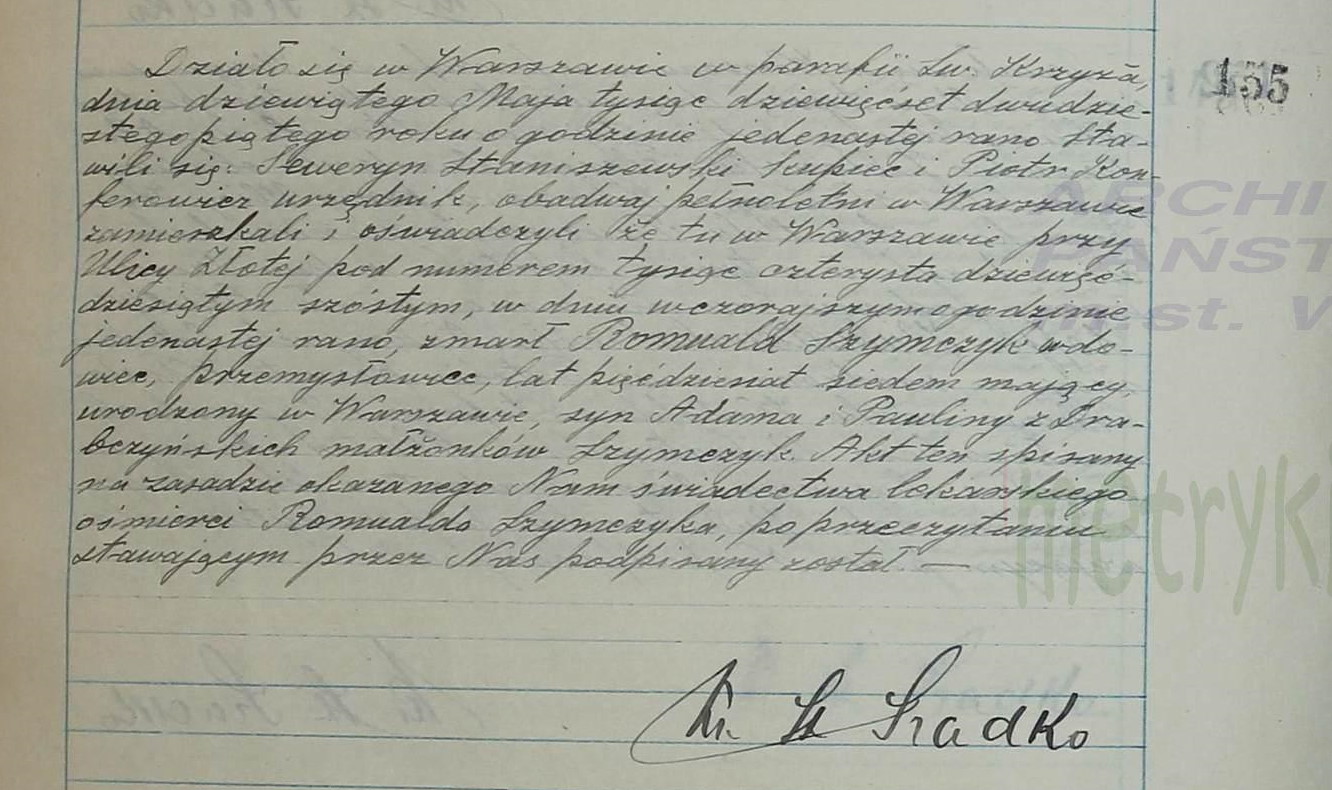 Działo się w Warszawie w parafii Św. Krzyża, 155
dnia dziewiątego Maja tysiąc dziewięćset dwudzie-
stego piątego roku o godzinie jedenastej rano Sta-
wili się: Seweryn Staniszewski kupiec i Piotr Kon-
ferowicz urzędnik, obadwaj pełnoletni w Warszawie
zamieszkali i oświadczyli że tu w Warszawie przy
Ulicy Złotej pod numerem tysiąc czterysta dziewięć-
dziesiątym szóstym, w dniu wczorajszym o godzinie
jedenastej rano, zmarł Romuald Szymczyk wdo-
wiec, przemysłowiec, lat pięćdziesiąt siedem mający,
urodzony w Warszawie, syn Adama i Pauliny z Dra-
bczyńskich małżonków Szymczyk. Akt ten spisany
na zasadzie okazanego Nam świadectwa lekarskiego
o śmierci Romualda Szymczyka, po przeczytaniu
stawającym przez Nas podpisany został —
Ks. St Sradko
ARCHI
PAŃST
m.st. W
metryk